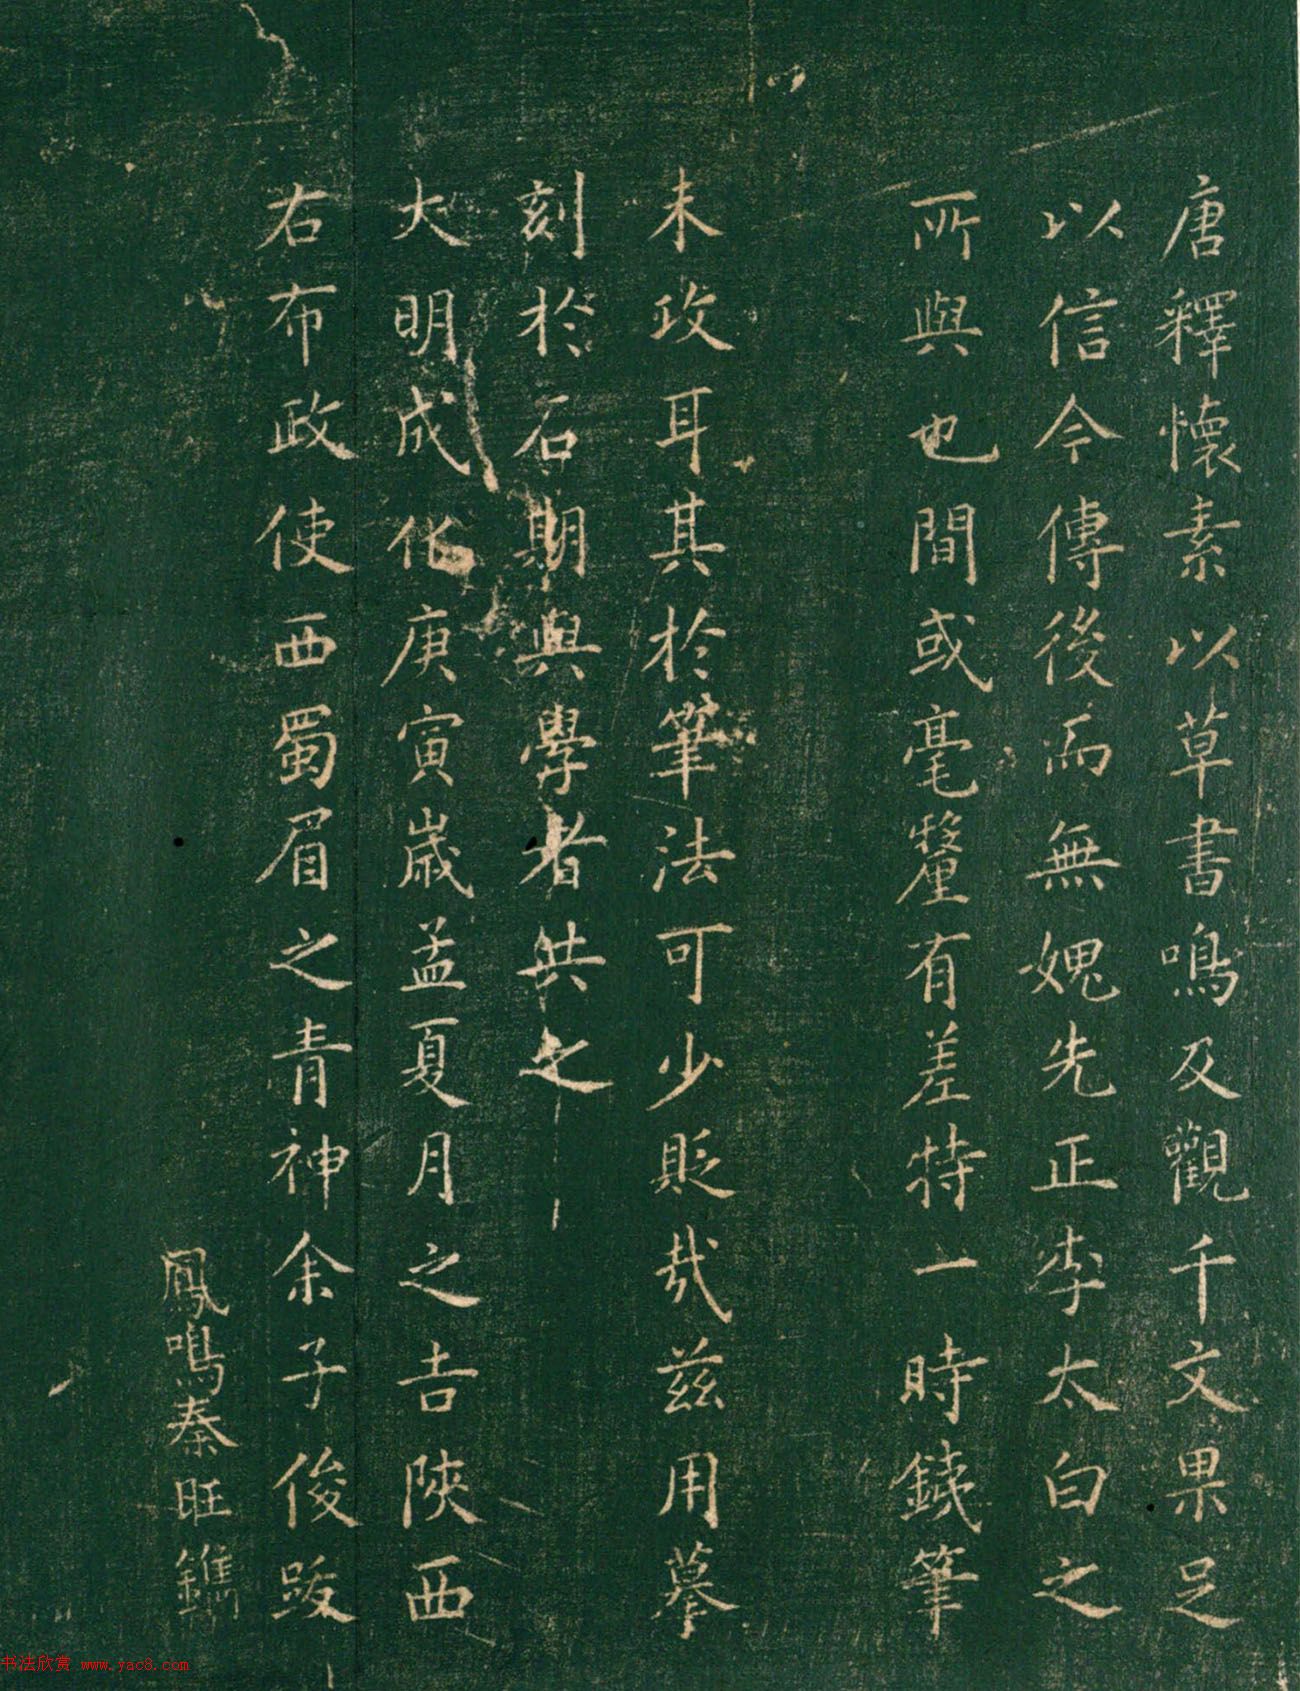 唐釋懷素以草書鳴及觀千文果足
以信今傳後而無媿先正李太白之
所與也間或毫釐有差特一時鋟筆
未政耳其於筆法可少貶哉茲用摹
刻於石期與學者共之
大明成化庚寅歲孟夏月之吉陝西
右布政使西蜀眉之青神余子俊跋
鳳鳴秦旺鐫
书法欣赏 www.yac8.com